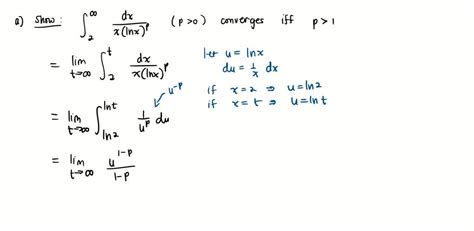 a) Show: ∫₂^∞ dx / x(lnx)^p (p>0) converges iff p>1
= lim t→∞ ∫₂^t dx / x(lnx)^p
let u = lnx
du = 1/x dx
if x=2 ⇒ u=ln2
if x=t ⇒ u=lnt
u^-p
= lim t→∞ ∫ln2^lnt 1/u^p du
= lim t→∞ u^1-p / 1-p